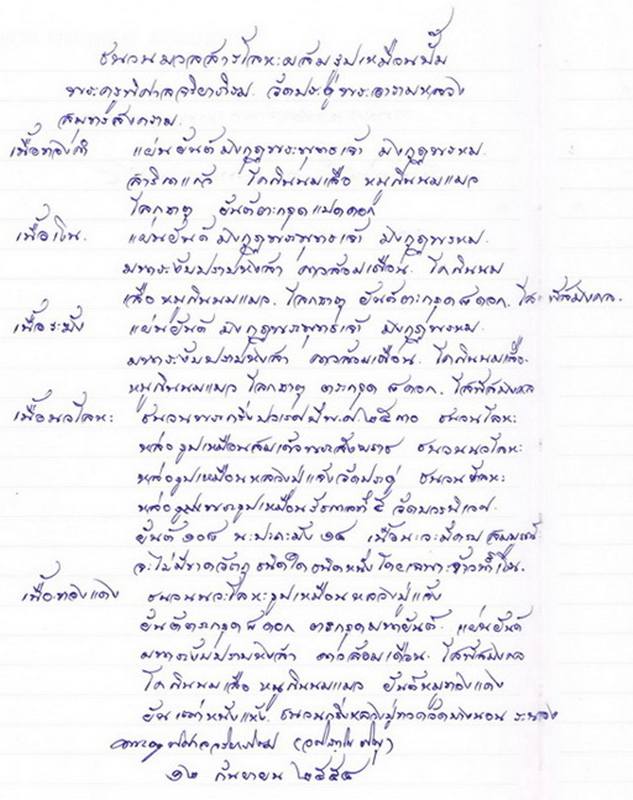 ชนวนมวลสารโลหะผสม รูปเหมือนปั๊ม
พระครูพิศาลจริยาภิรม วัดประดู่พระอารามหลวง
สมุทรสงคราม.
เนื้อทองคำ แผ่นยันต์ มงกุฎพระพุทธเจ้า มงกุฎพรหม.
สาริกาแก้ว โคกินนมเสือ หนูกินนมแมว
โลกธาตุ ยันต์ตะกรุดแปดดอก
เนื้อเงิน. แผ่นยันต์ มงกุฎพระพุทธเจ้า มงกุฎพรหม.
มหาระงับปราบหงสา ดาวล้อมเดือน. โคกินนม
เสือ หนูกินนมแมว. โลกธาตุ ยันต์ตะกรุด ๘ ดอก.
เนื้อระฆัง แผ่นยันต์ มงกุฎพระพุทธเจ้า มงกุฎพรหม.
มหาระงับปราบหงสา ดาวล้อมเดือน. โคกินนมเสือ.
หนูกินนมแมว โลกธาตุ ตะกรุด ๘ ดอก.
เนื้อนวโลหะ ชนวนพระกริ่งปวเรศปี พ.ศ. ๒๕๓๐ ชนวนโลหะ
หล่อรูปเหมือนสมเด็จพระสังฆราช ชนวนนวโลหะ
หล่อรูปเหมือนหลวงปู่แจ้งวัดประดู่ ชนวนโลหะ
หล่อรูปเหมือนรัชกาลที่ ๕ วัดบวรนิเวศ
ยันต์ ๑๐๘ นะปะถะมัง ๑๔ เนื้อนวะมีครบสมบูรณ์
จะไม่มีขาดวัตถุชนิดใดชนิดหนึ่ง โดยเฉพาะจ้าวน้ำเงิน.
เนื้อทองแดง ชนวนนวะโลหะรูปเหมือนหลวงปู่แจ้ง
ยันต์ตะกรุด ๘ ดอก ตะกรุดมหายันต์. แผ่นยันต์
มหาระงับปราบหงสา ดาวล้อมเดือน.
โคกินนมเสือ หนูกินนมแมว ยันต์หมูทองแดง
ชนวนกริ่งหลวงปู่
๑๒ กันยายน ๒๕๕๔